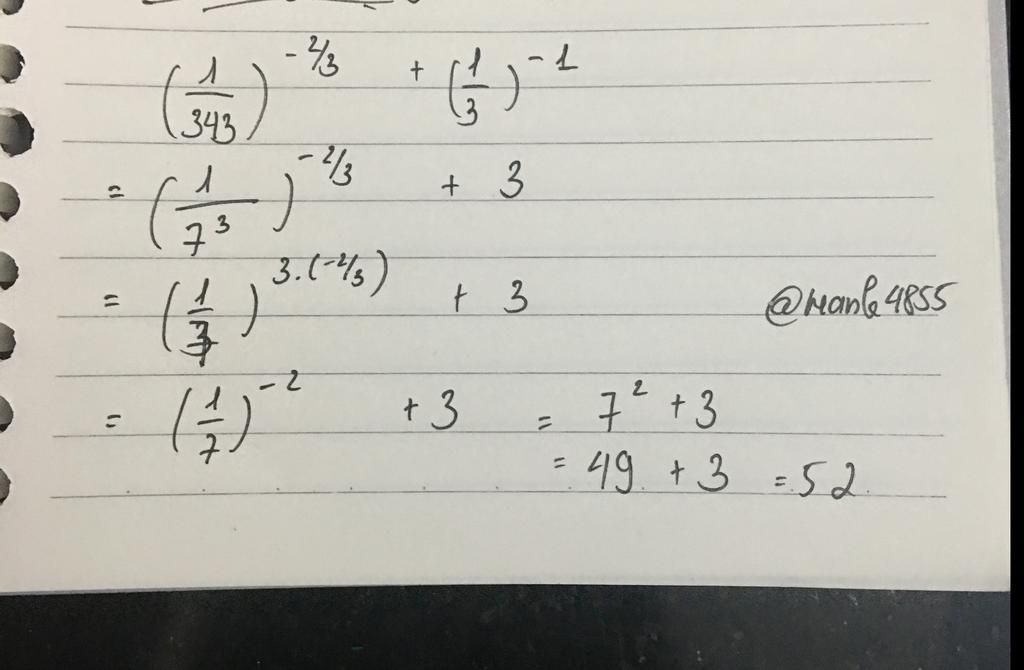 (1/343)^(-2/3) + (1/3)^(-1)
= (1/7^3)^(-2/3) + 3
= (1/7)^(3.(-2/3)) + 3
= (1/7)^(-2) + 3 = 7^2 + 3
= 49 + 3 = 52